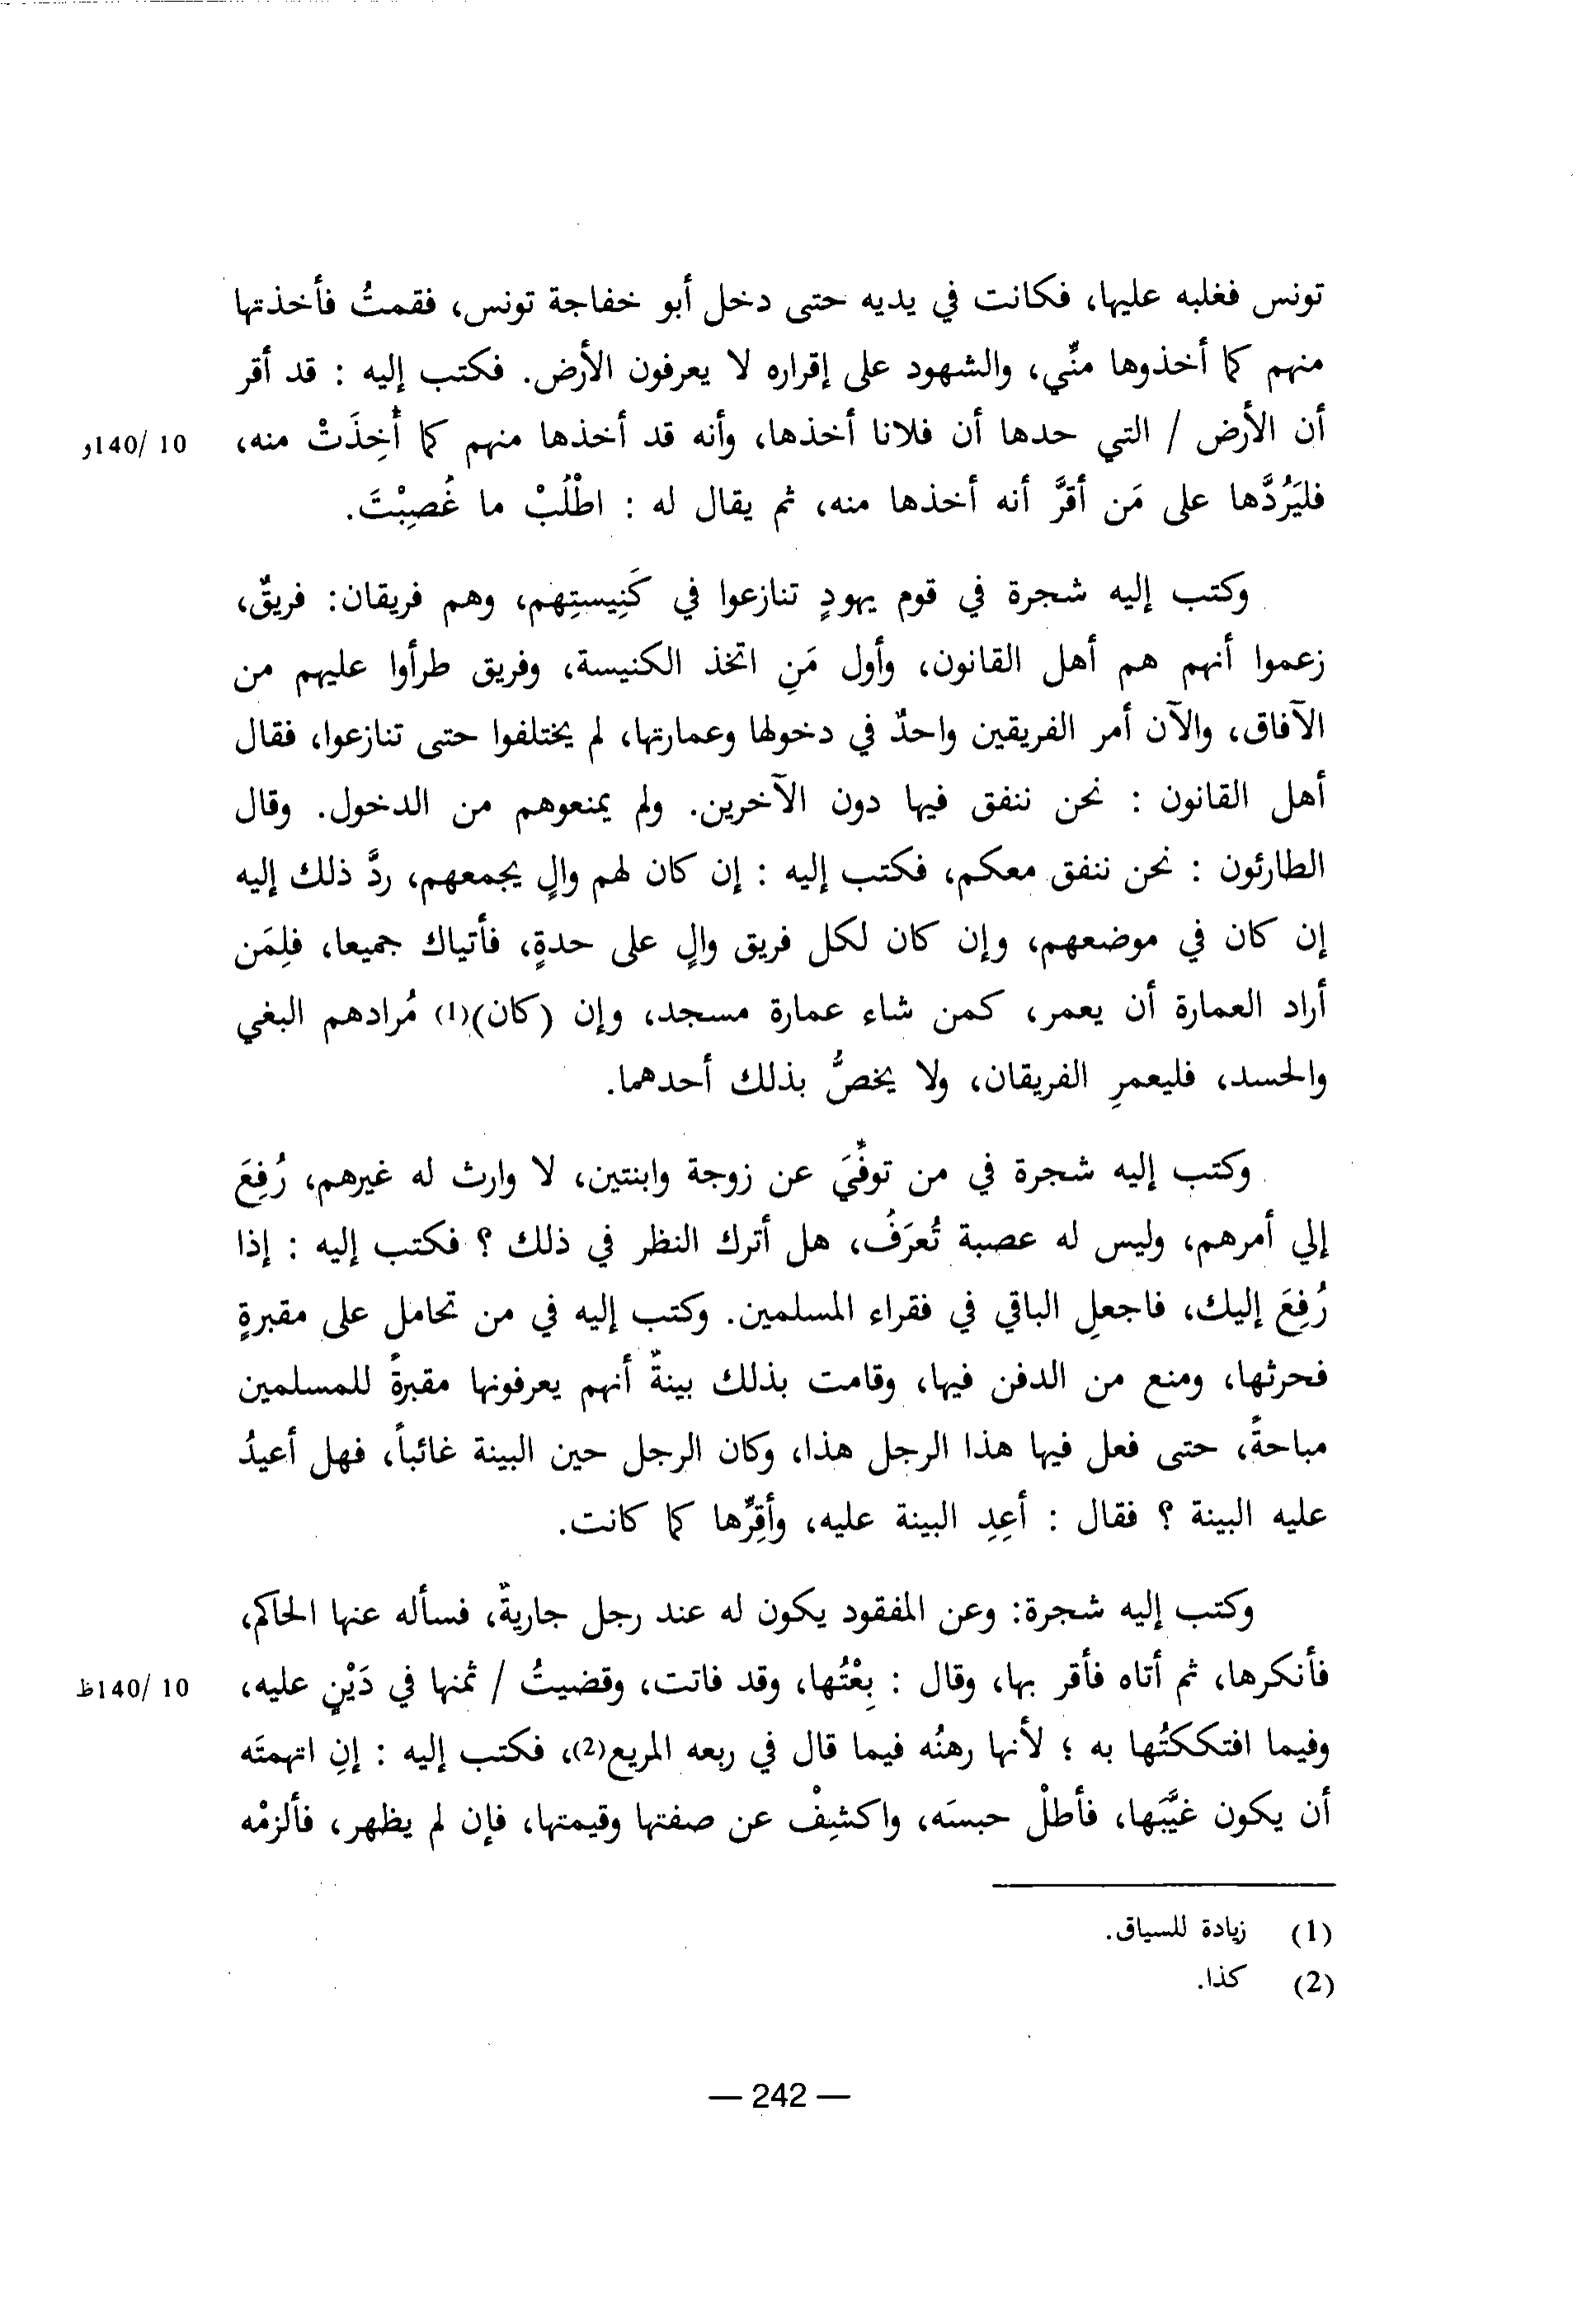 تونس فغلبه عليها، فكانت في يديه حتى دخل أبو خفاجة تونس، فقمتُ فأخذتها
منهم كما أخذوها منِّي، والشهود على إقراره لا يعرفون الأرض. فكتب إليه : قد أقر
أن الأرض / التي حدها أن فلانا أخذها، وأنه قد أخذها منهم كما أُخِذَتْ منه، 10 /140و
فليَرُدَّها على مَن أقرَّ أنه أخذها منه، ثم يقال له : اطْلُبْ ما غُصِبْتَ.
وكتب إليه شجرة في قوم يهودٍ تنازعوا في كَنِيستِهم، وهم فريقان: فريقٌ،
زعموا أنهم هم أهل القانون، وأول مَنِ اتخذ الكنيسة، وفريق طرأوا عليهم من
الآفاق، والآن أمر الفريقين واحدٌ في دخولها وعمارتها، لم يختلفوا حتى تنازعوا، فقال
أهل القانون : نحن ننفق فيها دون الآخرين. ولم يمنعوهم من الدخول. وقال
الطارئون : نحن ننفق معكم، فكتب إليه : إن كان لهم والٍ يجمعهم، ردَّ ذلك إليه
إن كان في موضعهم، وإن كان لكل فريق والٍ على حدةٍ، فأتياك جميعا، فلِمَن
أراد العمارة أن يعمر، كمن شاء عمارة مسجد، وإن (كان)(1) مُرادهم البغي
والحسد، فليعمرِ الفريقان، ولا يخصُّ بذلك أحدهما.
وكتب إليه شجرة في من توفِّيَ عن زوجة وابنتين، لا وارث له غيرهم، رُفِعَ
إلي أمرهم، وليس له عصبة تُعرَفُ، هل أترك النظر في ذلك ؟ فكتب إليه : إذا
رُفِعَ إليك، فاجعلِ الباقي في فقراء المسلمين. وكتب إليه في من تحامل على مقبرةٍ
فحرثها، ومنع من الدفن فيها، وقامت بذلك بينةٌ أنهم يعرفونها مقبرةً للمسلمين
مباحةً، حتى فعل فيها هذا الرجل هذا، وكان الرجل حين البينة غائباً، فهل أعيدُ
عليه البينة ؟ فقال : أعِدِ البينة عليه، وأقِرَّها كما كانت.
وكتب إليه شجرة: وعن المفقود يكون له عند رجل جاريةٌ، فسأله عنها الحاكم،
فأنكرها، ثم أتاه فأقر بها، وقال : بِعْتُها، وقد فاتت، وقضيتُ / ثمنها في دَيْنٍ عليه، 10 /140ظ
وفيما افتككتُها به ؛ لأنها رهنُه فيما قال في ربعه المريع(2)، فكتب إليه : إنِ اتهمتَه
أن يكون غيَّبَها، فأطلْ حبسَه، واكشِفْ عن صفتها وقيمتها، فإن لم يظهر، فألزمْه
(1) زيادة للسياق.
(2) كذا.
— 242 —